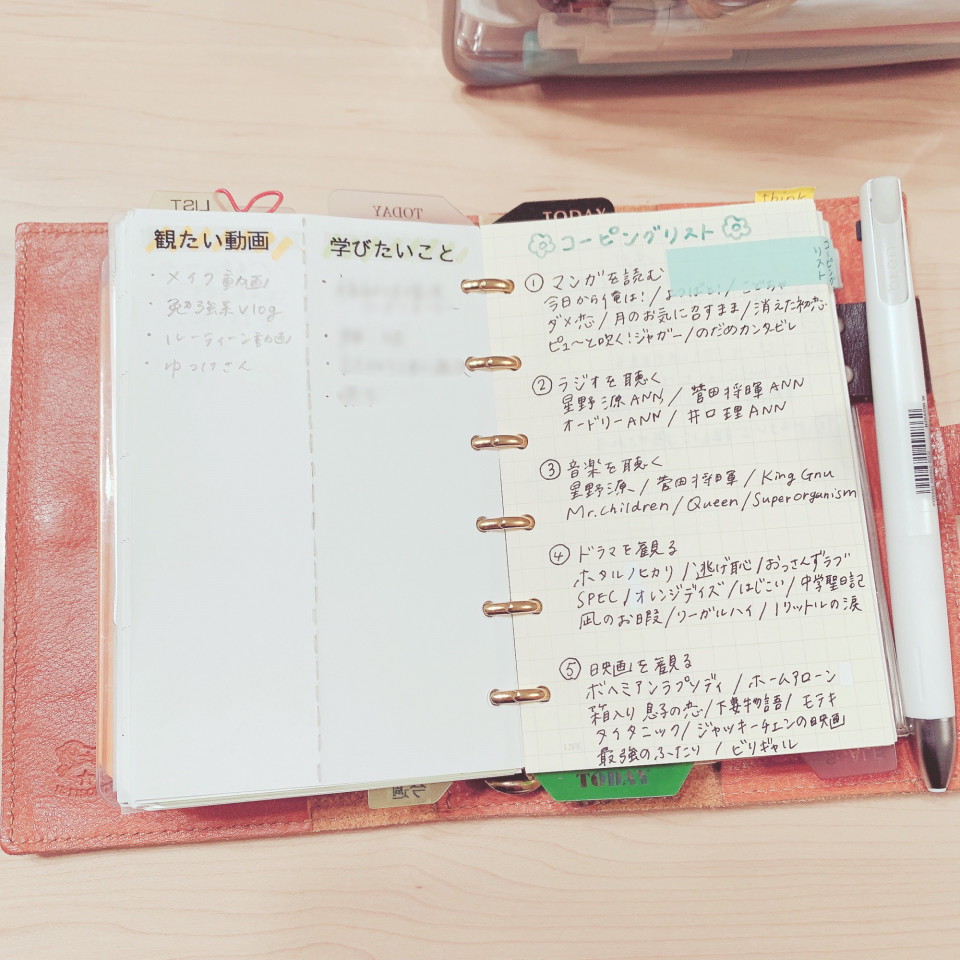 LIST
TODAY
TODAY
think
観たい動画
・メイク動画
・勉強系vlog
・ルーティーン動画
・ゆっけさん
学びたいこと
コーピングリスト
コーピングリスト
① マンガを読む
今日から俺は!/よつばと!/
ダメ恋/月のお気に召すまま/消えた初恋
ピューと吹く!ジャガー/のだめカンタビレ
② ラジオを聴く
星野源ANN/菅田将暉ANN
オードリーANN/井口理ANN
③ 音楽を聴く
星野源/菅田将暉/King Gnu
Mr.Children/Queen/Superorganism
④ ドラマを観る
ホタルノヒカリ/逃げ恥/おっさんずラブ
SPEC/オレンジデイズ/はじこい/中学聖日記
凪のお暇/リーガルハイ/1リットルの涙
⑤ 映画を観る
ボヘミアンラプソディ/ホームアローン
箱入り息子の恋/下妻物語/モテキ
タイタニック/ジャッキーチェンの映画
最強のふたり/ビリギャル
TODAY